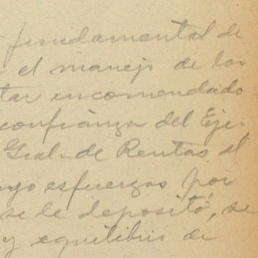 fundamental de
el manejo de los
tar encomendado
confianza del Eje-
Gral. de Rentas, el
esfuerzos por
se le depositó, se
y equilibrio de